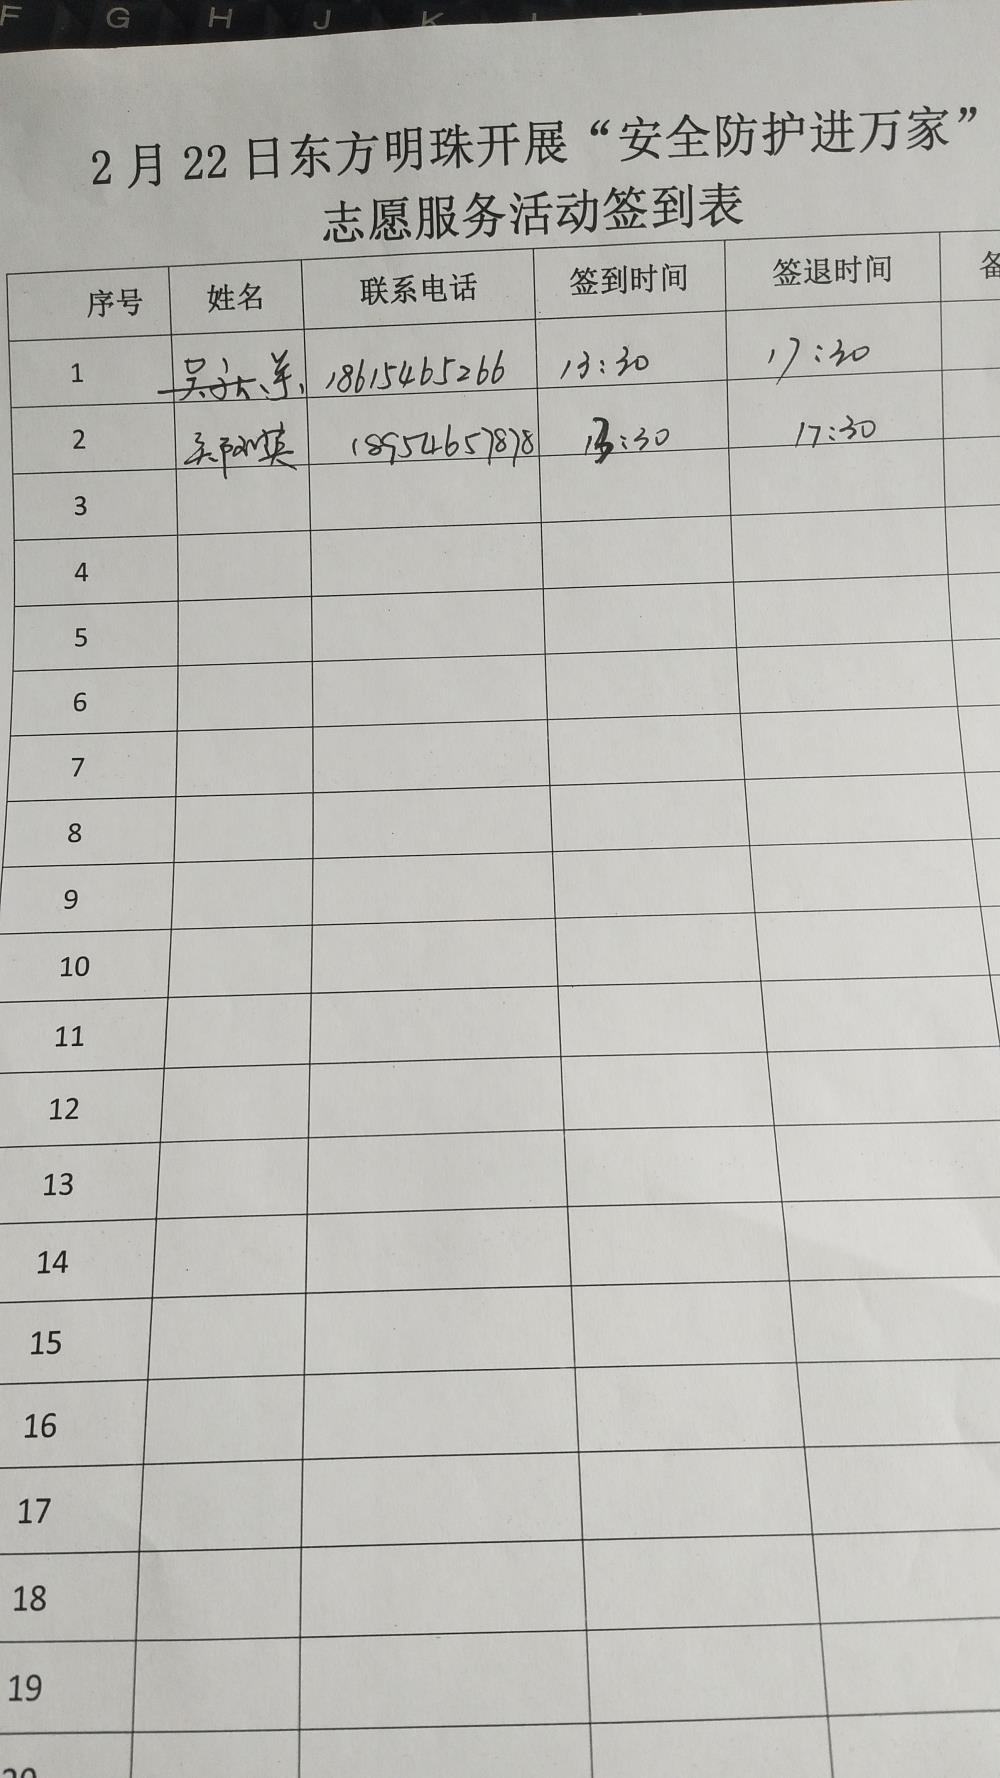 F G H J K
2月22日东方明珠开展“安全防护进万家”
志愿服务活动签到表
序号 姓名 联系电话 签到时间 签退时间 备
1 18615465266 13:30 17:30
2 18954657878 13:30 17:30
3
4
5
6
7
8
9
10
11
12
13
14
15
16
17
18
19
20